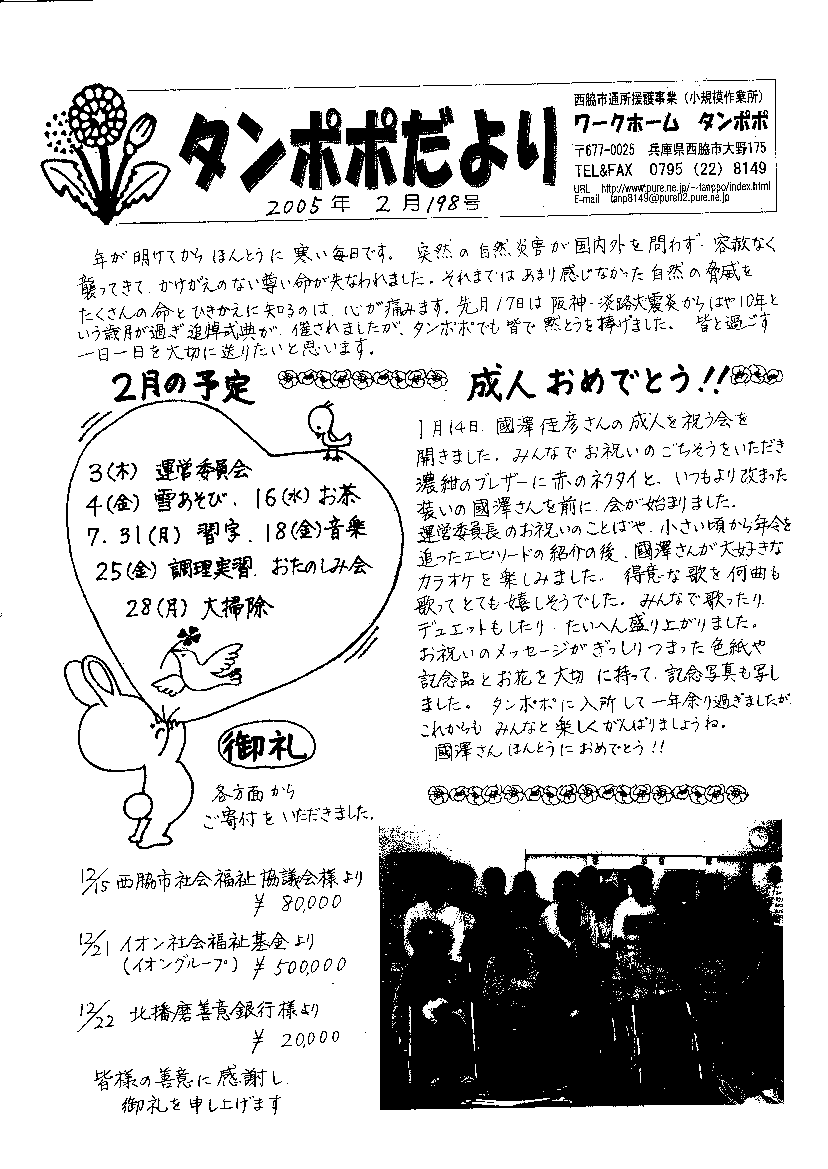 タンポポだより
2005年 2月198号
西脇市通所援護事業（小規模作業所）
ワークホーム タンポポ
〒677-0025 兵庫県西脇市大野175
TEL&FAX 0795 (22) 8149
URL http://www.pure.ne.jp/~-tanpo/index.html
E-mail tanp8149@pure02.pure.ne.jp
年が明けてから ほんとうに 寒い毎日です。 突然の自然災害が国内外を問わず、容赦なく
襲ってきて、かけがえのない尊い命が失なわれました。それまでは あまり感じなかった 自然の脅威を
たくさんの命とひきかえに知るのは、心が痛みます。先月17日は 阪神・淡路大震災からはや10年と
いう歳月が過ぎ追悼式典が、催されましたが、タンポポでも皆で 黙とうを捧げました。 皆と過ごす
一日一日を大切に送りたいと思います。
2月の予定
3(木) 運営委員会
4(金) 雪あそび、16(水)お茶
7.31(月) 習字、18(金)音楽
25(金) 調理実習、おたのしみ会
28(月) 大掃除
御礼
各方面から
ご寄付をいただきました。
12/15 西脇市社会福祉協議会様より
¥ 80,000
12/21 イオン社会福祉基金より
(イオングループ) ¥ 500,000
12/22 北播磨善意銀行様より
¥ 20,000
皆様の善意に感謝し
御礼を申し上げます
成人おめでとう!!
1月14日、國澤佳彦さんの成人を祝う会を
開きました。みんなでお祝いのごちそうをいただき
濃紺のブレザーに赤のネクタイと、いつもより改まった
装いの國澤さんを前に、会が始まりました。
運営委員長のお祝いのことばや、小さい頃から年令を
追ったエピソードの紹介の後、國澤さんが大好きな
カラオケを楽しみました。 得意な歌を何曲も
歌ってとても嬉しそうでした。みんなで歌ったり、
デュエットもしたり、たいへん盛り上がりました。
お祝いのメッセージがぎっしりつまった色紙や
記念品とお花を大切に持って、記念写真も写し
ました。 タンポポに入所して一年余り過ぎましたが
これからも みんなと楽しくがんばりましょうね。
國澤さん ほんとうにおめでとう!!